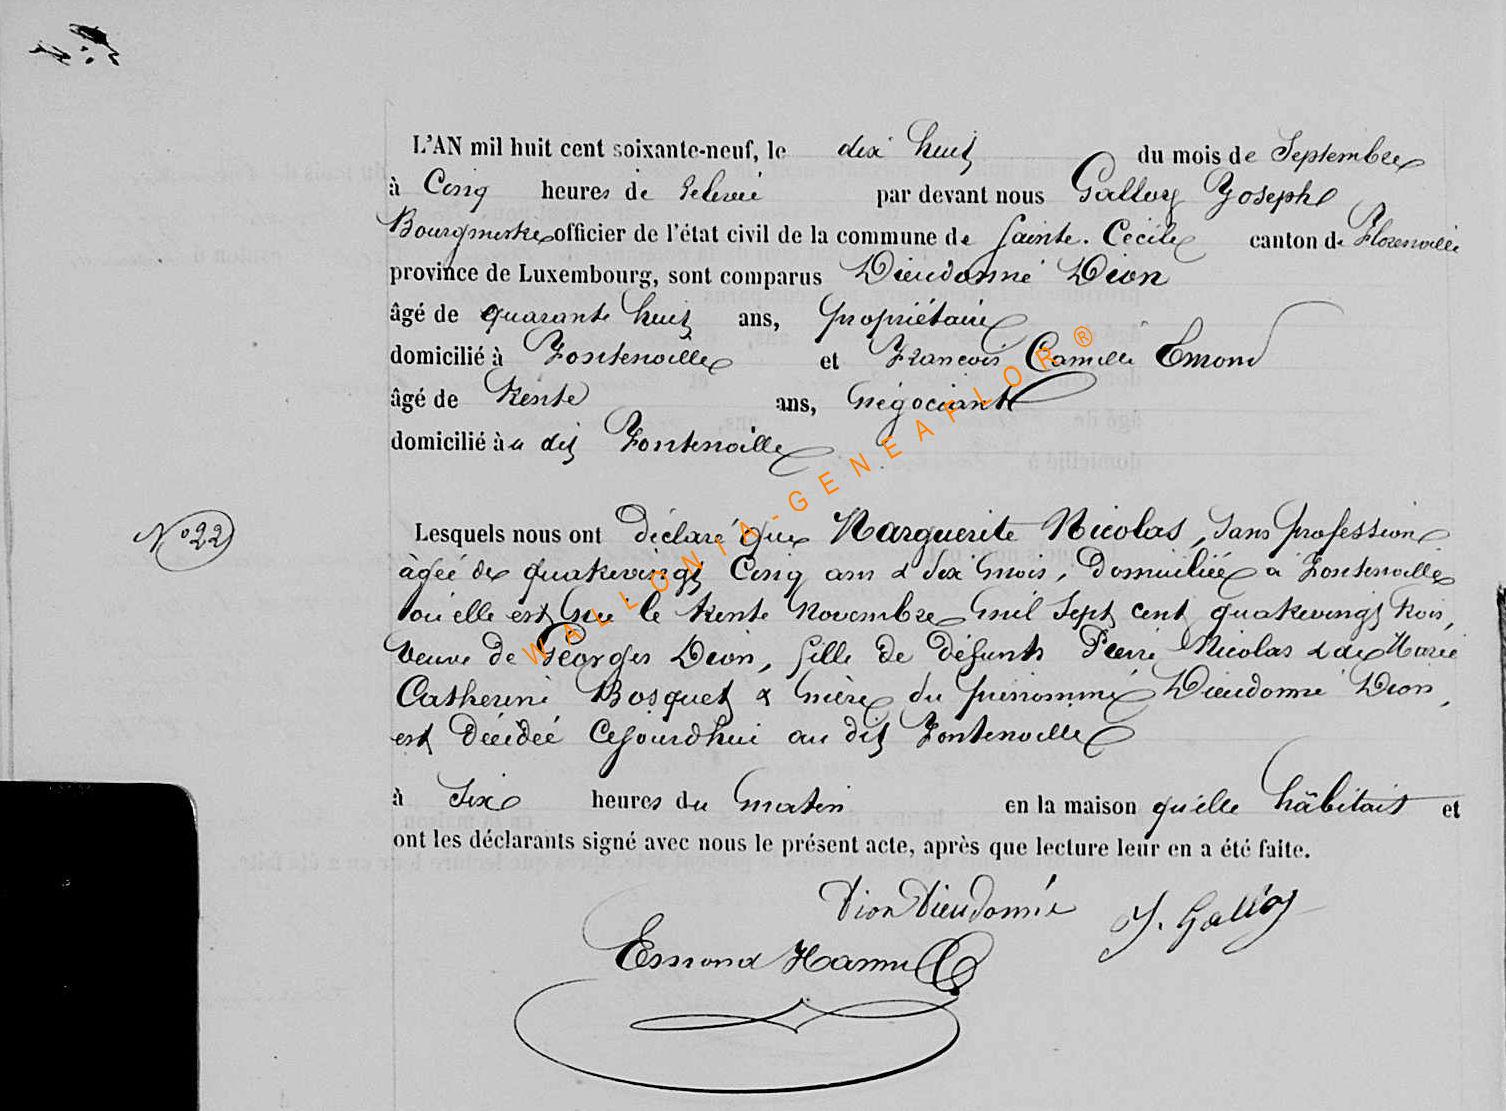 L'AN mil huit cent soixante-neuf, le dix huit du mois de Septembre
à Cinq heures de relevée par devant nous Galloy Joseph
Bourgmestre officier de l'état civil de la commune de Sainte. Cécile canton de Florenville
province de Luxembourg, sont comparus Dieudonné Dion
âgé de quarante huit ans, propriétaire
domicilié à Fontenoille et François Camille Emond
âgé de trente ans, négociant
domicilié à u dit Fontenoille
N° 22
Lesquels nous ont déclaré que Marguerite Nicolas, sans profession
âgée de quatrevingt Cinq ans & dix mois, Domiciliée à Fontenoille
où elle est née le trente Novembre mil Sept cent quatrevingt trois,
Veuve de Georges Dion, fille de défunts Pierre Nicolas & de Marie
Catherine Bosquet & mère du prénommé Dieudonné Dion,
est Décédée Cejourd'hui au dit Fontenoille
à Six heures du matin en la maison qu'elle hâbitait et
ont les déclarants signé avec nous le présent acte, après que lecture leur en a été faite.
Dion Dieudonné J. Galloy
Emond
WALLONIA-GENEAFLOR ®